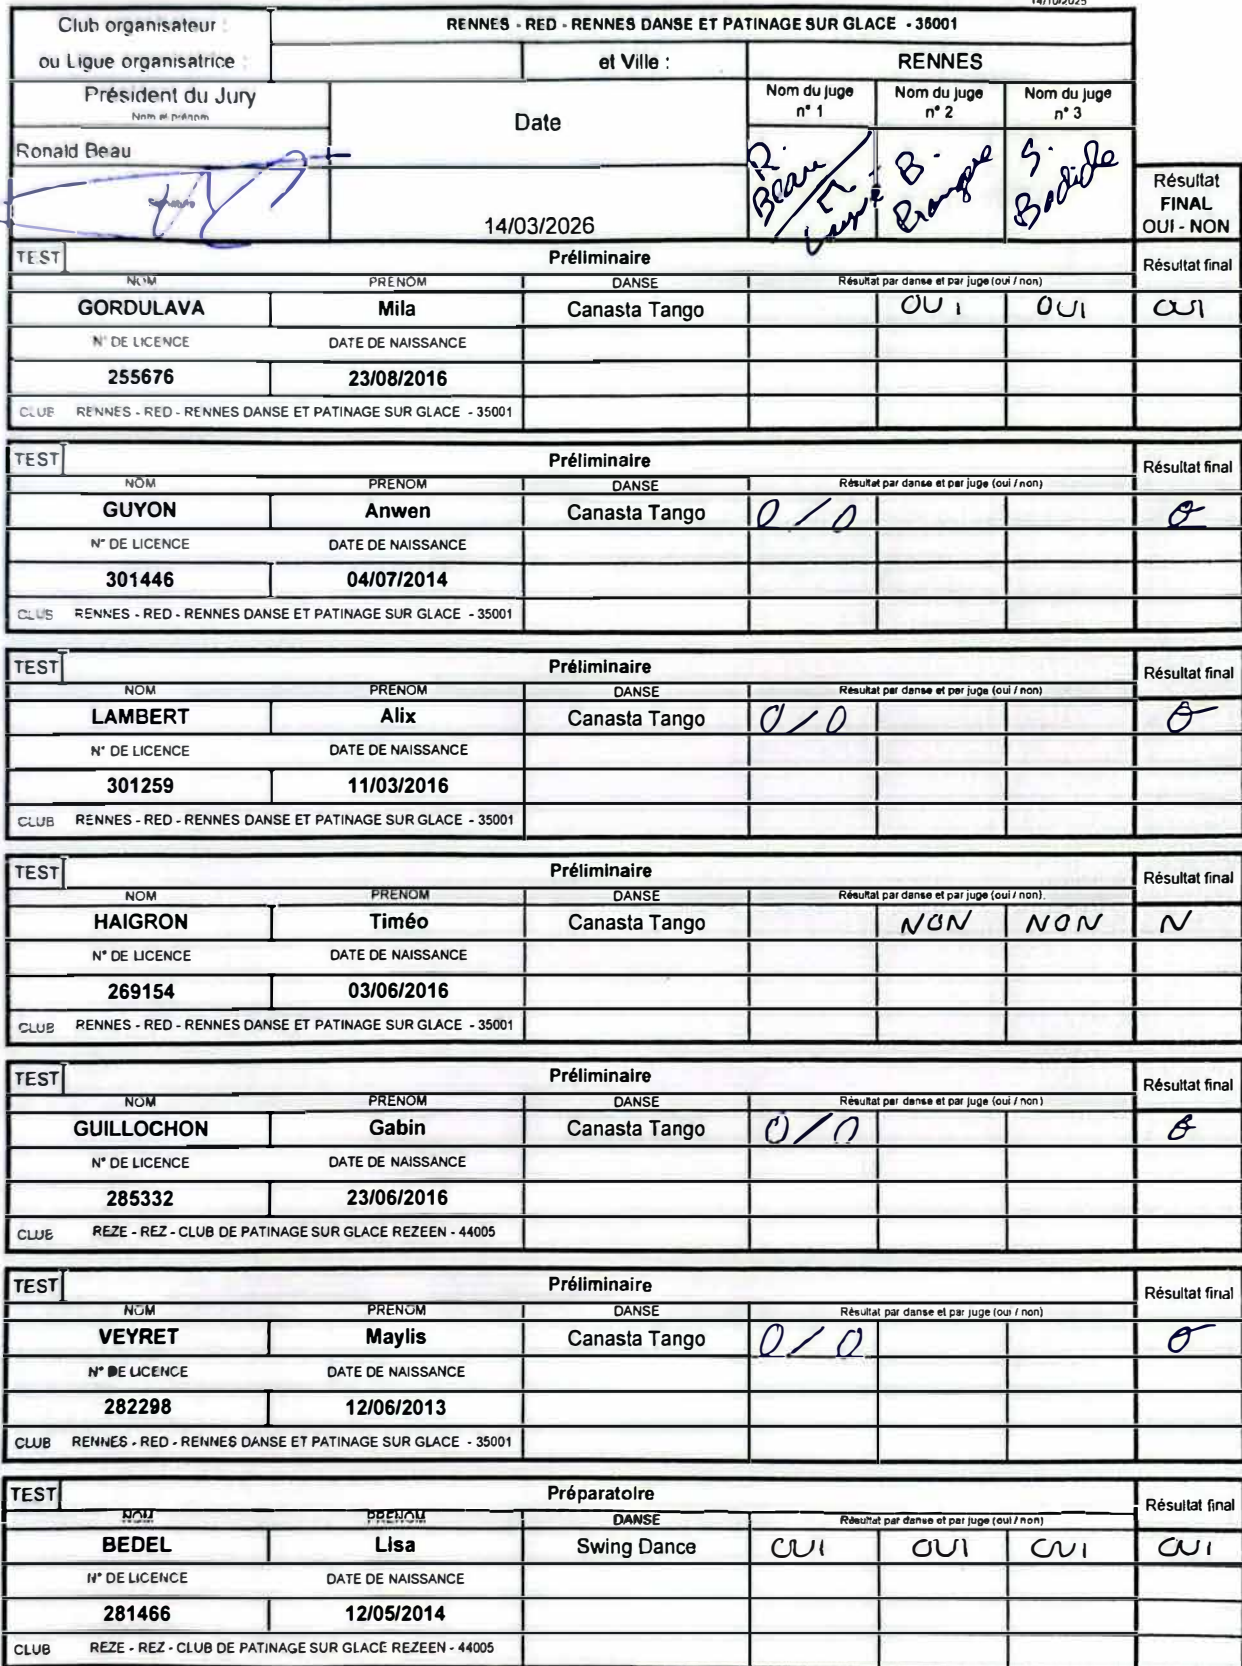 14/10/2025
Club organisateur : RENNES - RED - RENNES DANSE ET PATINAGE SUR GLACE - 35001
ou Ligue organisatrice : et Ville : RENNES
Président du Jury Date Nom du juge n° 1 Nom du juge n° 2 Nom du juge n° 3
Nom et prénom
Ronald Beau
R. Beau / B. S. Bodiche
14/03/2026
Résultat FINAL OUI - NON
TEST Préliminaire Résultat final
NOM PRENOM DANSE Résultat par danse et par juge (oui / non)
GORDULAVA Mila Canasta Tango OUI OUI OUI
N° DE LICENCE DATE DE NAISSANCE
255676 23/08/2016
CLUB RENNES - RED - RENNES DANSE ET PATINAGE SUR GLACE - 35001
TEST Préliminaire Résultat final
NOM PRENOM DANSE Résultat par danse et par juge (oui / non)
GUYON Anwen Canasta Tango O / O O
N° DE LICENCE DATE DE NAISSANCE
301446 04/07/2014
CLUB RENNES - RED - RENNES DANSE ET PATINAGE SUR GLACE - 35001
TEST Préliminaire Résultat final
NOM PRENOM DANSE Résultat par danse et par juge (oui / non)
LAMBERT Alix Canasta Tango O / O O
N° DE LICENCE DATE DE NAISSANCE
301259 11/03/2016
CLUB RENNES - RED - RENNES DANSE ET PATINAGE SUR GLACE - 35001
TEST Préliminaire Résultat final
NOM PRENOM DANSE Résultat par danse et par juge (oui / non)
HAIGRON Timéo Canasta Tango NON NON N
N° DE LICENCE DATE DE NAISSANCE
269154 03/06/2016
CLUB RENNES - RED - RENNES DANSE ET PATINAGE SUR GLACE - 35001
TEST Préliminaire Résultat final
NOM PRENOM DANSE Résultat par danse et par juge (oui / non)
GUILLOCHON Gabin Canasta Tango O / O O
N° DE LICENCE DATE DE NAISSANCE
285332 23/06/2016
CLUB REZE - REZ - CLUB DE PATINAGE SUR GLACE REZEEN - 44005
TEST Préliminaire Résultat final
NOM PRENOM DANSE Résultat par danse et par juge (oui / non)
VEYRET Maylis Canasta Tango O / O O
N° DE LICENCE DATE DE NAISSANCE
282298 12/06/2013
CLUB RENNES - RED - RENNES DANSE ET PATINAGE SUR GLACE - 35001
TEST Préparatoire Résultat final
NOM PRENOM DANSE Résultat par danse et par juge (oui / non)
BEDEL Lisa Swing Dance OUI OUI OUI OUI
N° DE LICENCE DATE DE NAISSANCE
281466 12/05/2014
CLUB REZE - REZ - CLUB DE PATINAGE SUR GLACE REZEEN - 44005